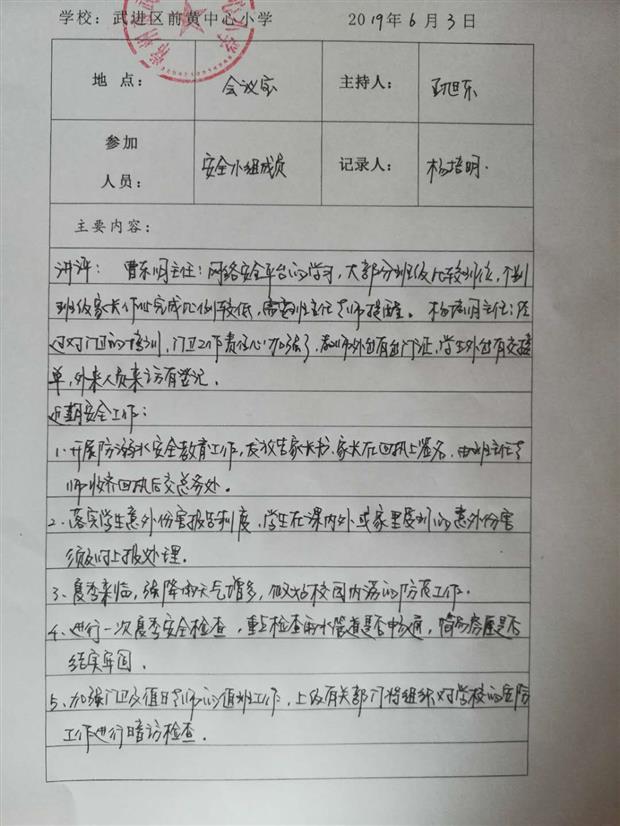 学校：武进区前黄中心小学 2019年6月3日
地 点： 会议室 主持人： 东
参加人员： 安全小组成员 记录人： 杨培明
主要内容：
讲评： 曹东明主任：网络安全平台的学习，大部分班级比较到位，个别
班级家长作业完成比例较低，需要班主任老师提醒。 杨培明主任：经
过对门卫的培训，门卫工作责任心加强了，教师外出有出门证，学生外出有交接
单，外来人员来访有登记。
近期安全工作：
1、开展防溺水安全教育工作，发放告家长书，家长在回执上签名，由班主任老
师收齐回执后交总务处。
2、落实学生意外伤害报告制度，学生在课内外或家里受到的意外伤害
须及时上报处理。
3、夏季来临，强降雨天气增多，做好校园内涝的防范工作。
4、进行一次夏季安全检查，重点检查雨水管道是否畅通，简易房屋是否
结实牢固。
5、加强门卫及值日老师的值班工作，上级有关部门将组织对学校的安防
工作进行暗访检查。